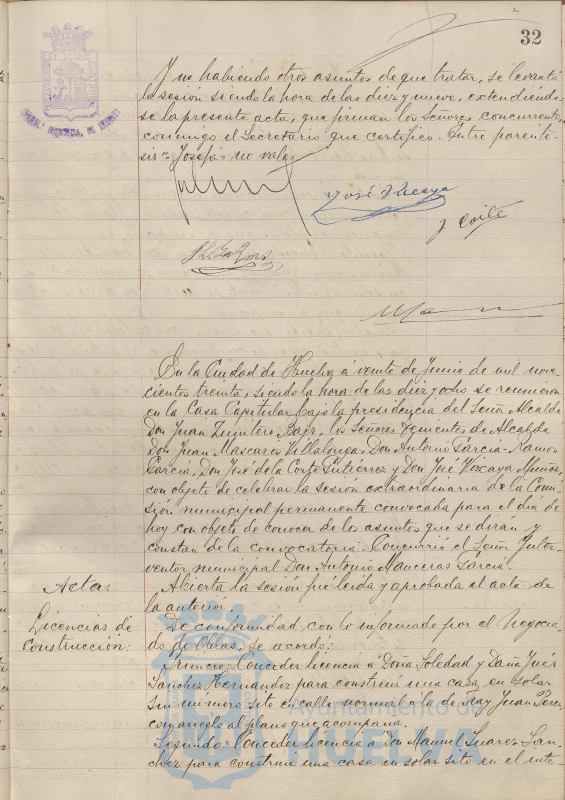 32
Y no habiendo otros asuntos de que tratar, se levantó
la sesión siendo la hora de las diez y nueve, extendiéndo-
se la presente acta, que firman los Señores concurrentes
conmigo el Secretario que certifico. Entre parente-
sis = Josefa = no vale =
José Vizcaya
J. Corte
En la Ciudad de Huelva á veinte de Junio de mil nove-
cientos treinta, siendo la hora de las diez y ocho se reunieron
en la Casa Capitular, bajo la presidencia del Señor Alcalde
Don Juan Quintero Baez, los Señores Tenientes de Alcalde
Don Juan Mascaros Villalonga, Don Antonio Garcia-Ramos
Garcia, Don José de la Corte Gutiérrez y Don José Vizcaya Muñoz,
con objeto de celebrar la sesión extraordinaria de la Comi-
sión municipal permanente convocada para el día de
hoy con objeto de conocer de los asuntos que se dirán y
constan de la convocatoria. Concurrió el Señor Inter-
ventor municipal Don Antonio Manceras Garcia.
Acta:
Abierta la sesión fué leída y aprobada el acta de
la anterior.
Licencias de
Construcción:
De conformidad con lo informado por el Negocia-
do de Obras, se acordó:
Primero: Conceder licencia a Doña Soledad y Doña Inés
Sanchez Hernandez para construir una casa en solar
sin número sito en calle normal á la de Fray Juan Perez
con arreglo al plano que acompaña.
Segundo: Conceder licencia a Don Manuel Suarez San-
chez para construir una casa en solar sito en el inte-
Ayuntamiento de
HUELVA